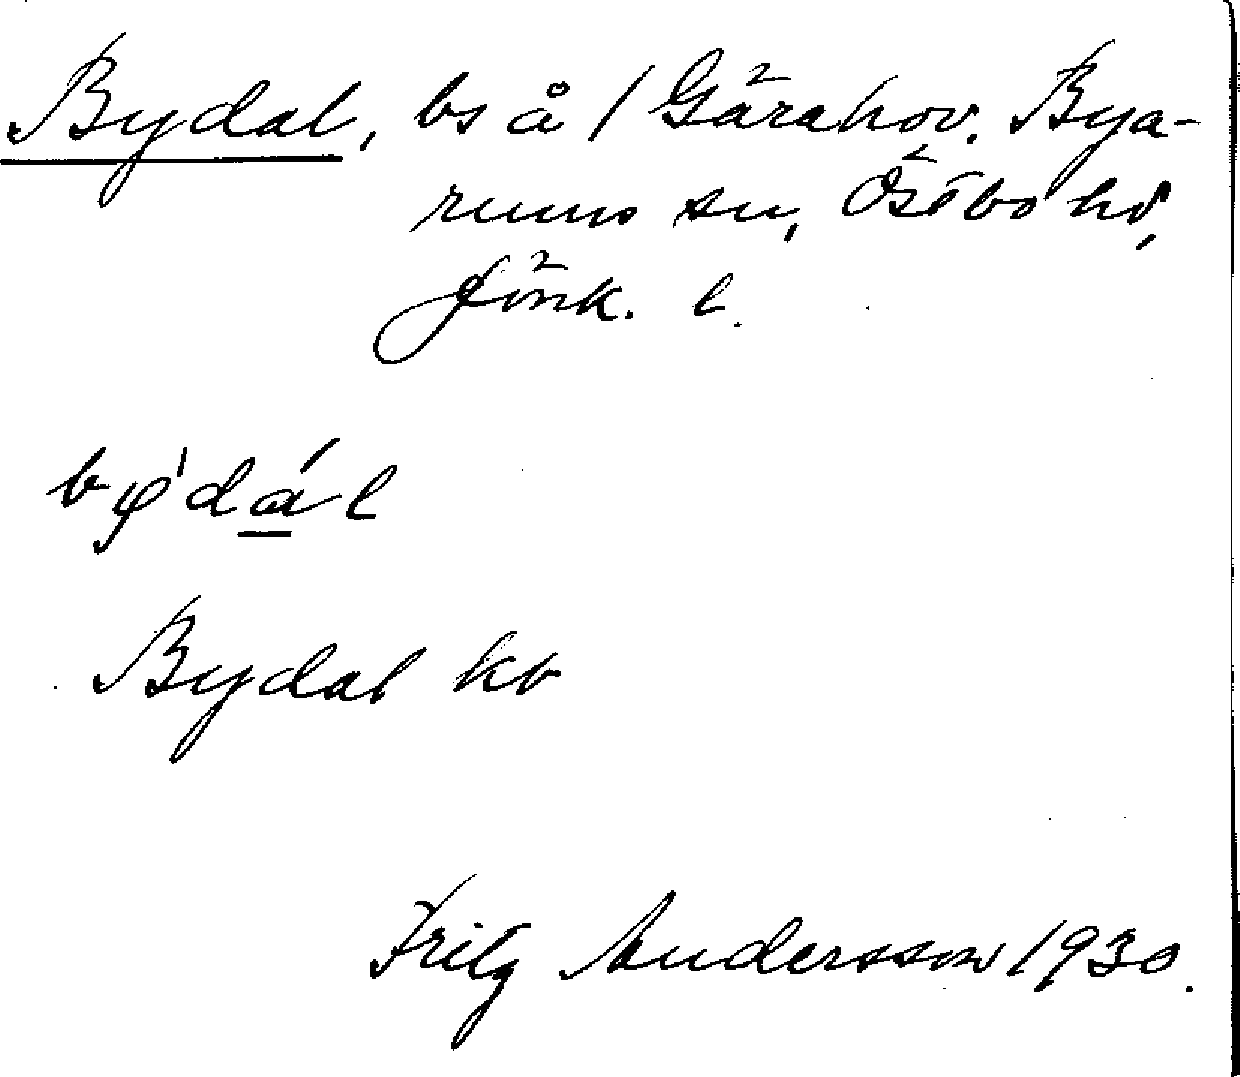 Bydal, bs å 1 Gärahov. Bya-
rums sn, Östbo hd,
Jönk. l.
by'dál
Bydal kb
Frilg Andersson 1930.